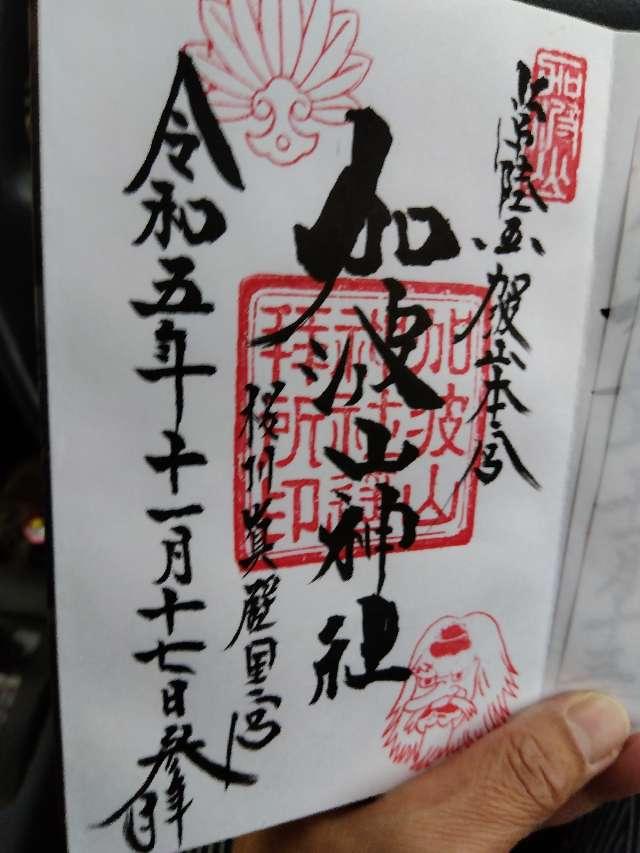 加波山
常陸国 加波山本宮
加波山神社
加波山
神社
拝所印
桜川真壁里宮
令和五年十一月十七日参拝